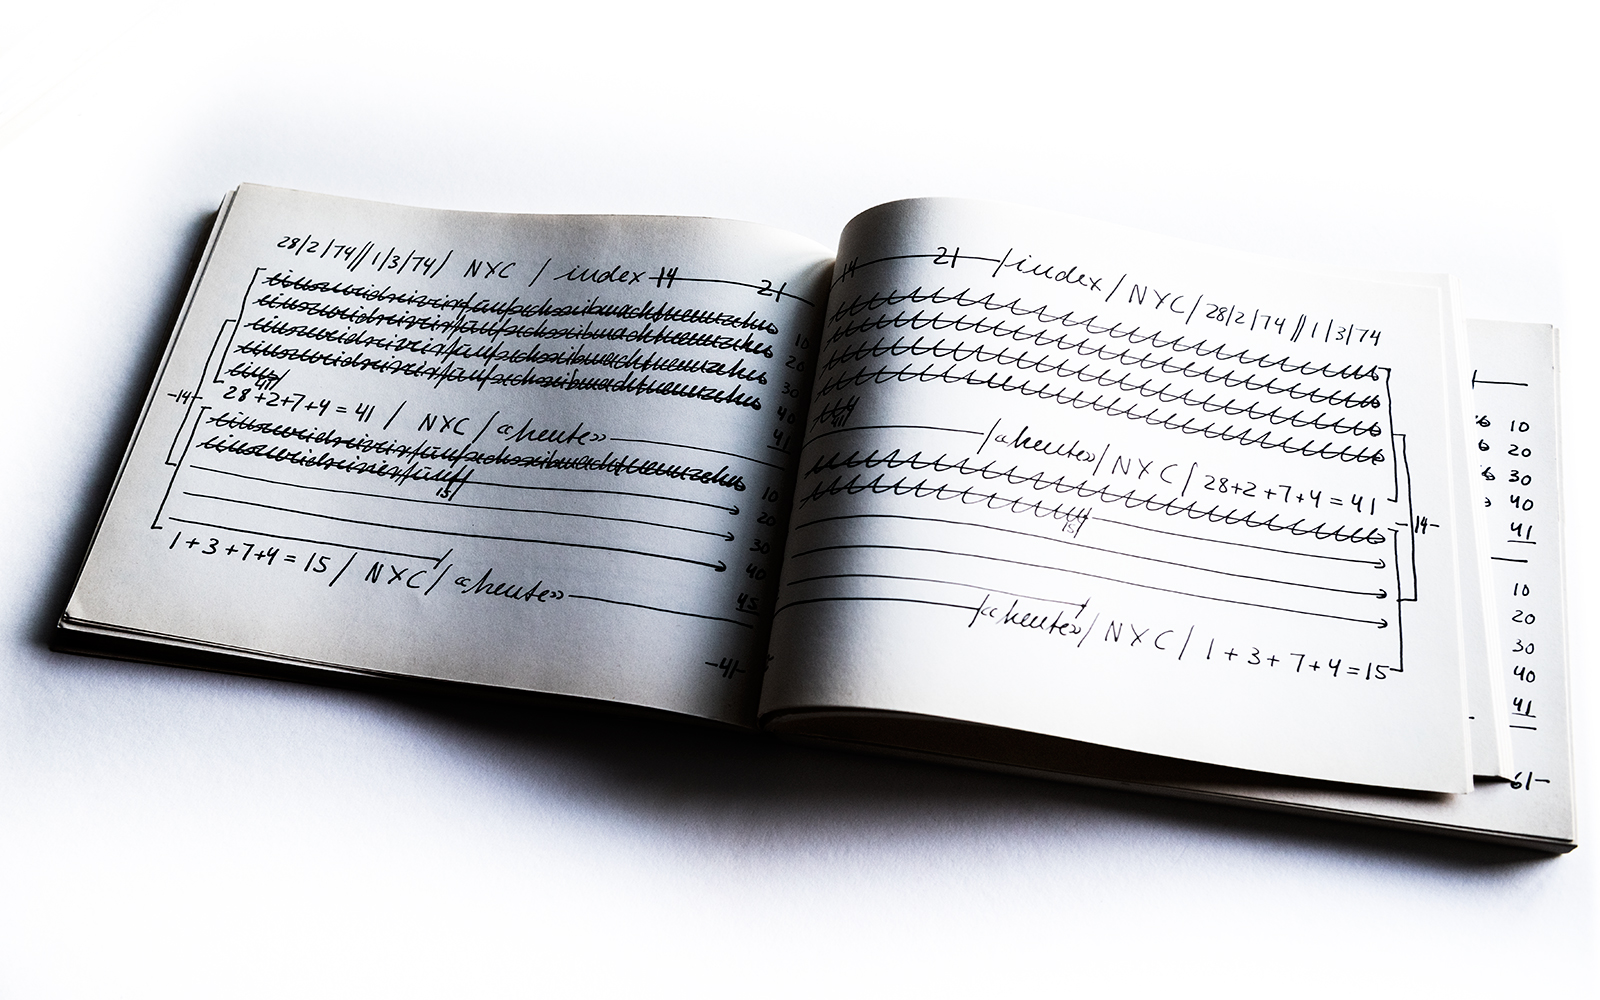 28/2/74//1/3/74/ NYC / index 14 21
einszweidreivierfünfsechssiebenachtneunzehn 10
einszweidreivierfünfsechssiebenachtneunzehn 20
einszweidreivierfünfsechssiebenachtneunzehn 30
einszweidreivierfünfsechssiebenachtneunzehn 40
eins/ 41 41
-14-
28+2+7+4=41 / NYC / «heute»
einszweidreivierfünfsechssiebenachtneunzehn 10
einszweidreivierfünf/ 15 20
30
40
45
1+3+7+4=15 / NYC / «heute»
-41-
14 21 /index/ NYC/ 28/2/74//1/3/74
41
/«heute»/ NYC / 28+2+7+4=41
-14-
15
/«heute»/ NYC / 1+3+7+4=15
10
20
30
40
41
10
20
30
40
41
61-